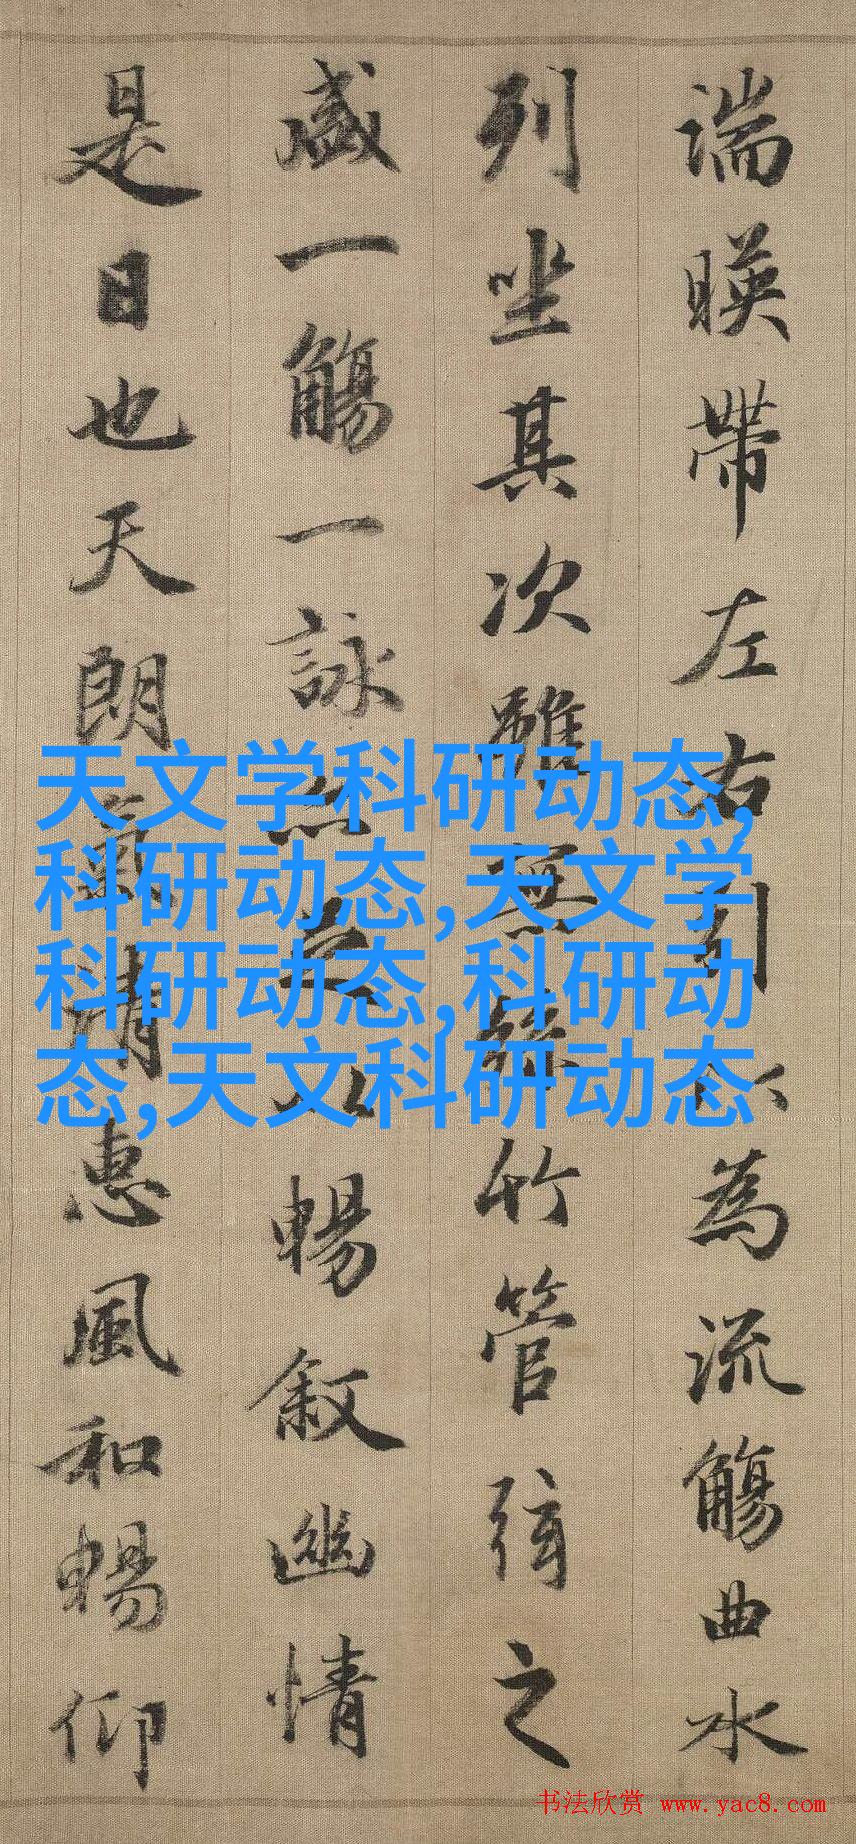 湍暎帶左右引以為流觴曲水
列坐其次雖無絲竹管弦之
盛一觴一詠亦足以暢敘幽情
是日也天朗氣清惠風和暢仰
天文学科研动态,
科研动态,天文学
科研动态,科研动
态,天文科研动态
书法欣赏 www.yac8.com